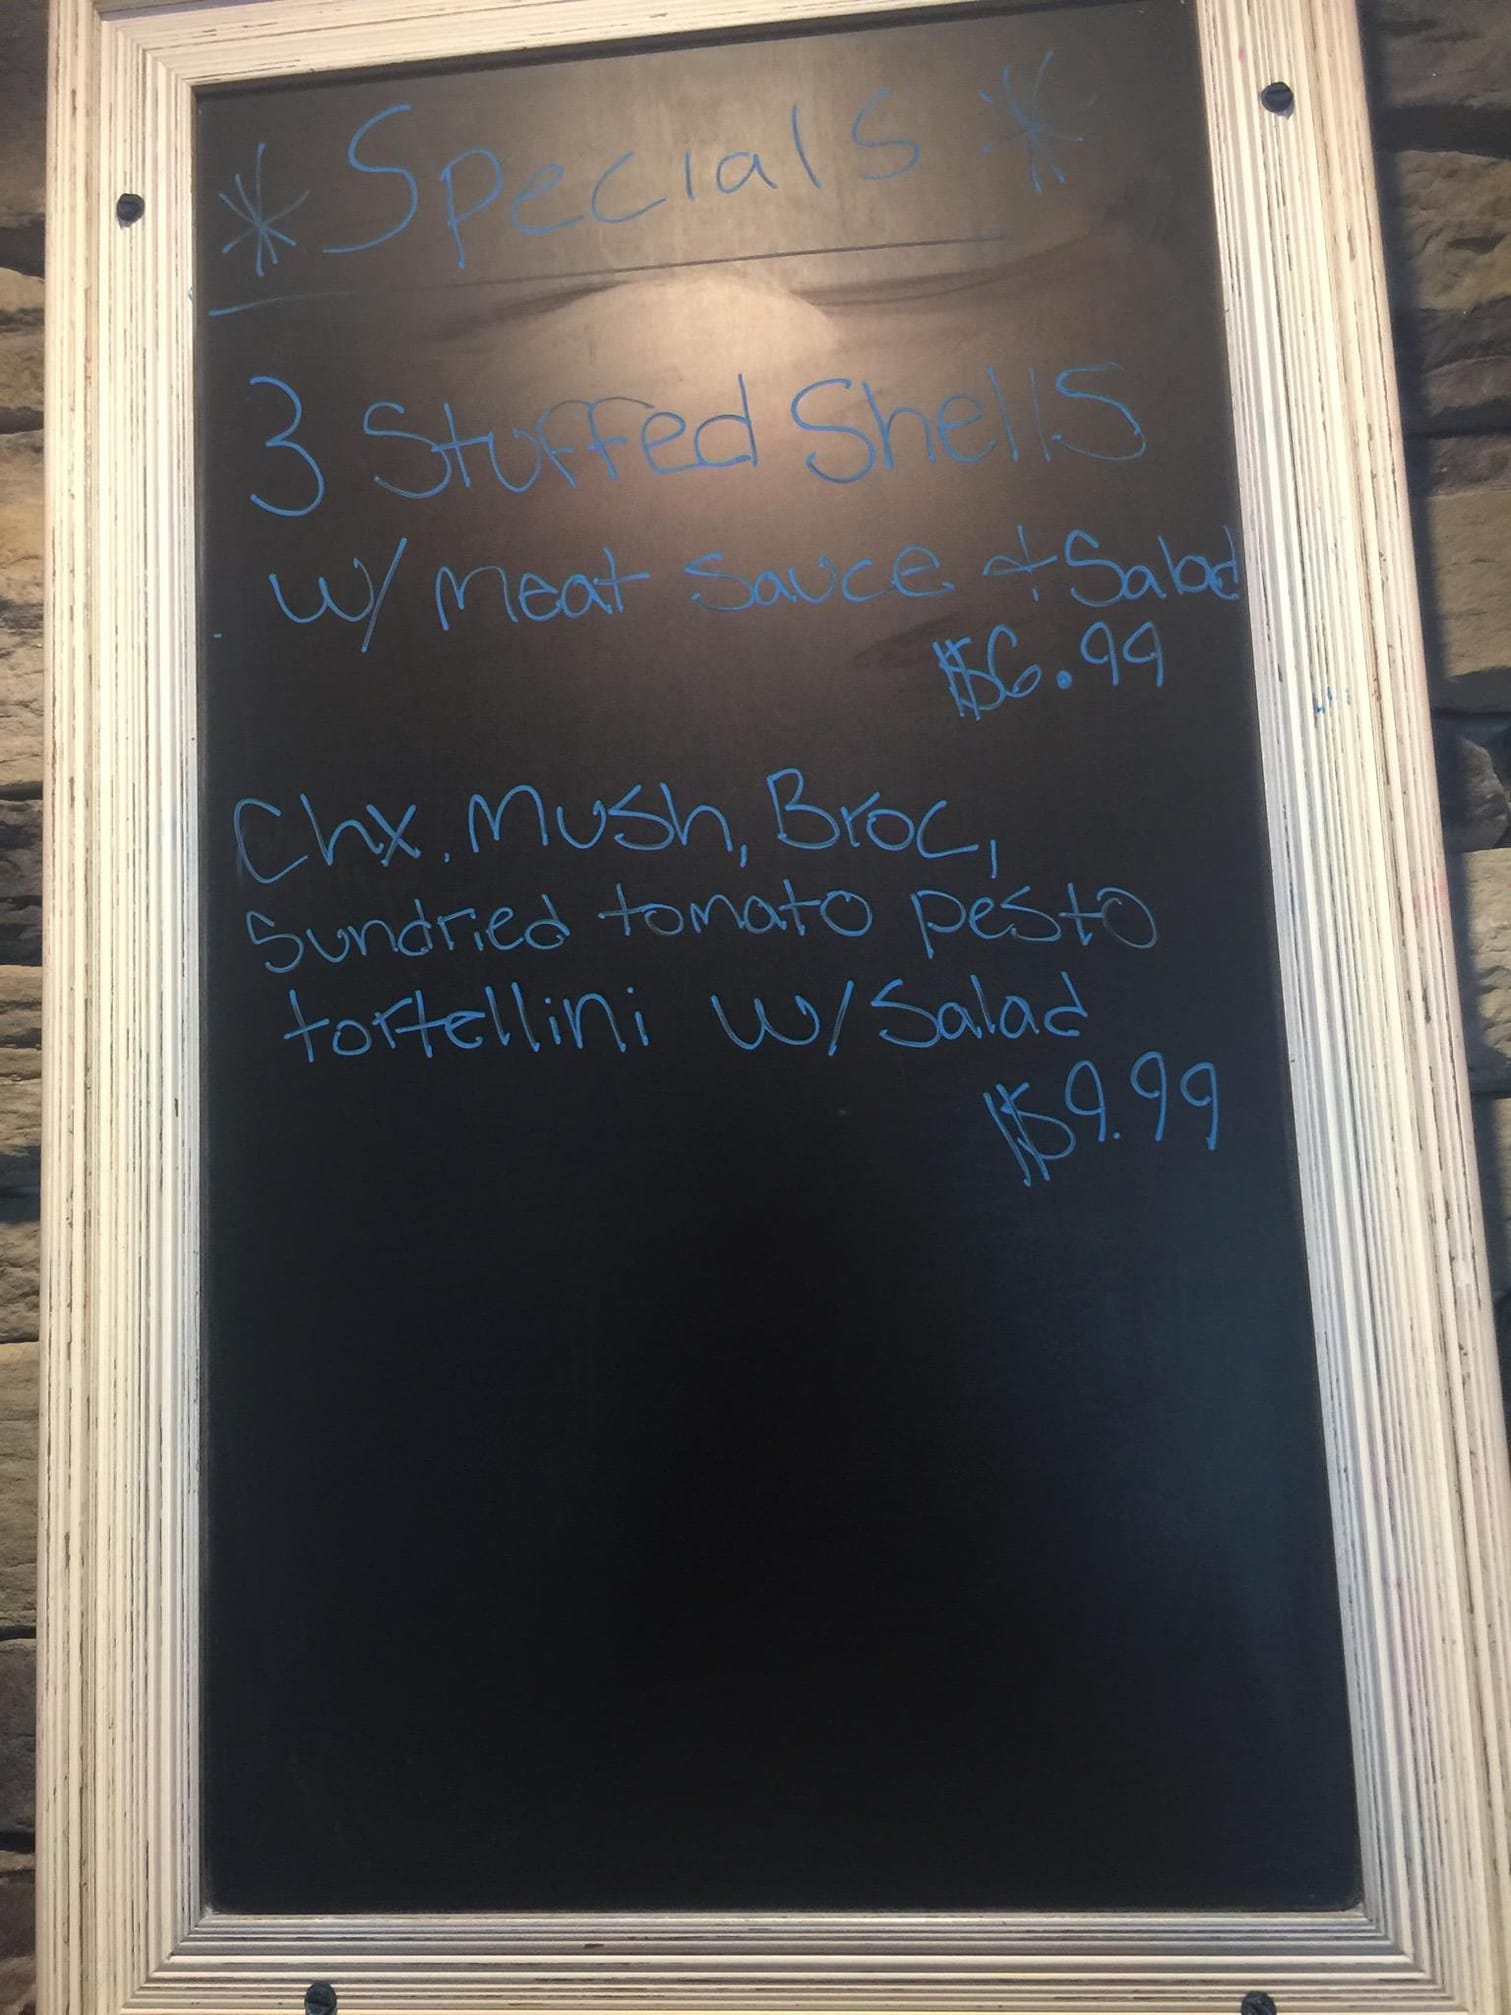 * Specials *
3 Stuffed Shells
w/ Meat Sauce + Salad
$6.99
Chx, Mush, Broc,
Sundried tomato pesto
tortellini w/ Salad
$9.99